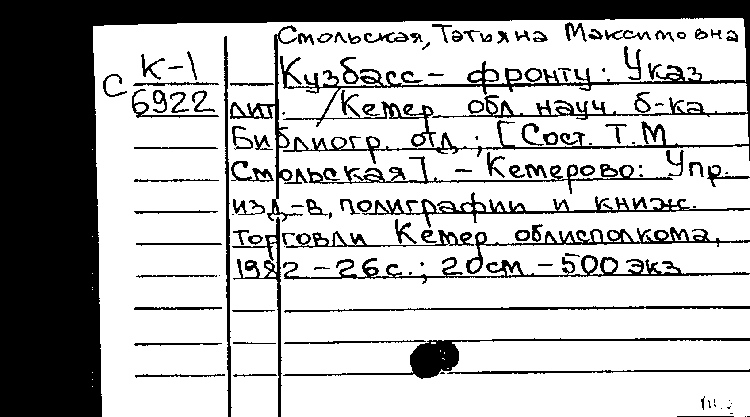 Смольская, Татьяна Максимовна
С К-1
6922
Кузбасс – фронту: Указ.
лит. / Кемер. обл. науч. б-ка.
Библиогр. отд.; [Сост. Т.М.
Смольская]. – Кемерово: Упр.
изд-в, полиграфии и книж.
торговли Кемер. облисполкома,
1982 – 26 с.; 20 см. – 500 экз